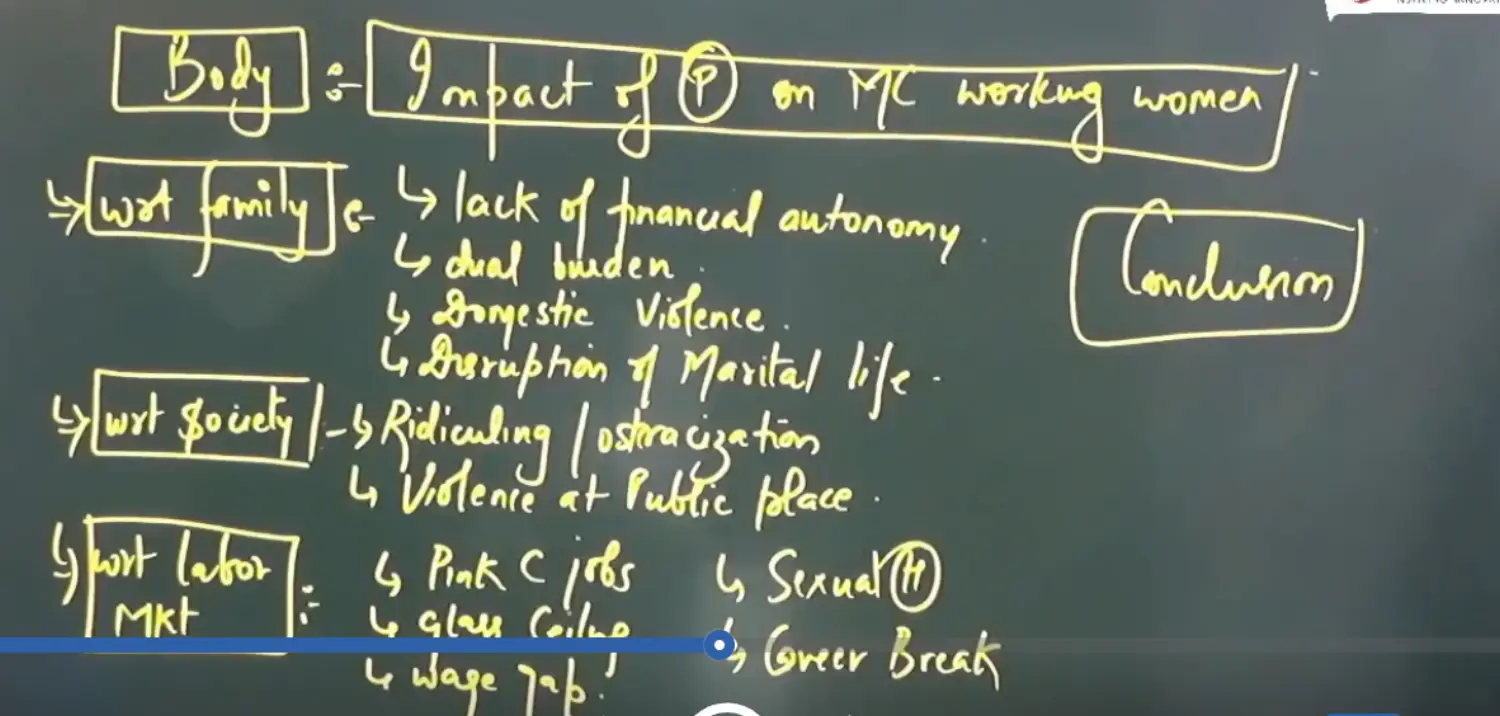 Body :- Impact of (P) on MC working women
↳ wrt family :- ↳ lack of financial autonomy.
↳ dual burden.
↳ Domestic Violence.
↳ Disruption of Marital life.
Conclusion
↳ wrt Society - ↳ Ridiculing / ostracization
↳ Violence at Public place.
↳ wrt labor Mkt :- ↳ Pink C jobs ↳ Sexual (H)
↳ Glass Ceiling ↳ Career Break
↳ Wage gap!